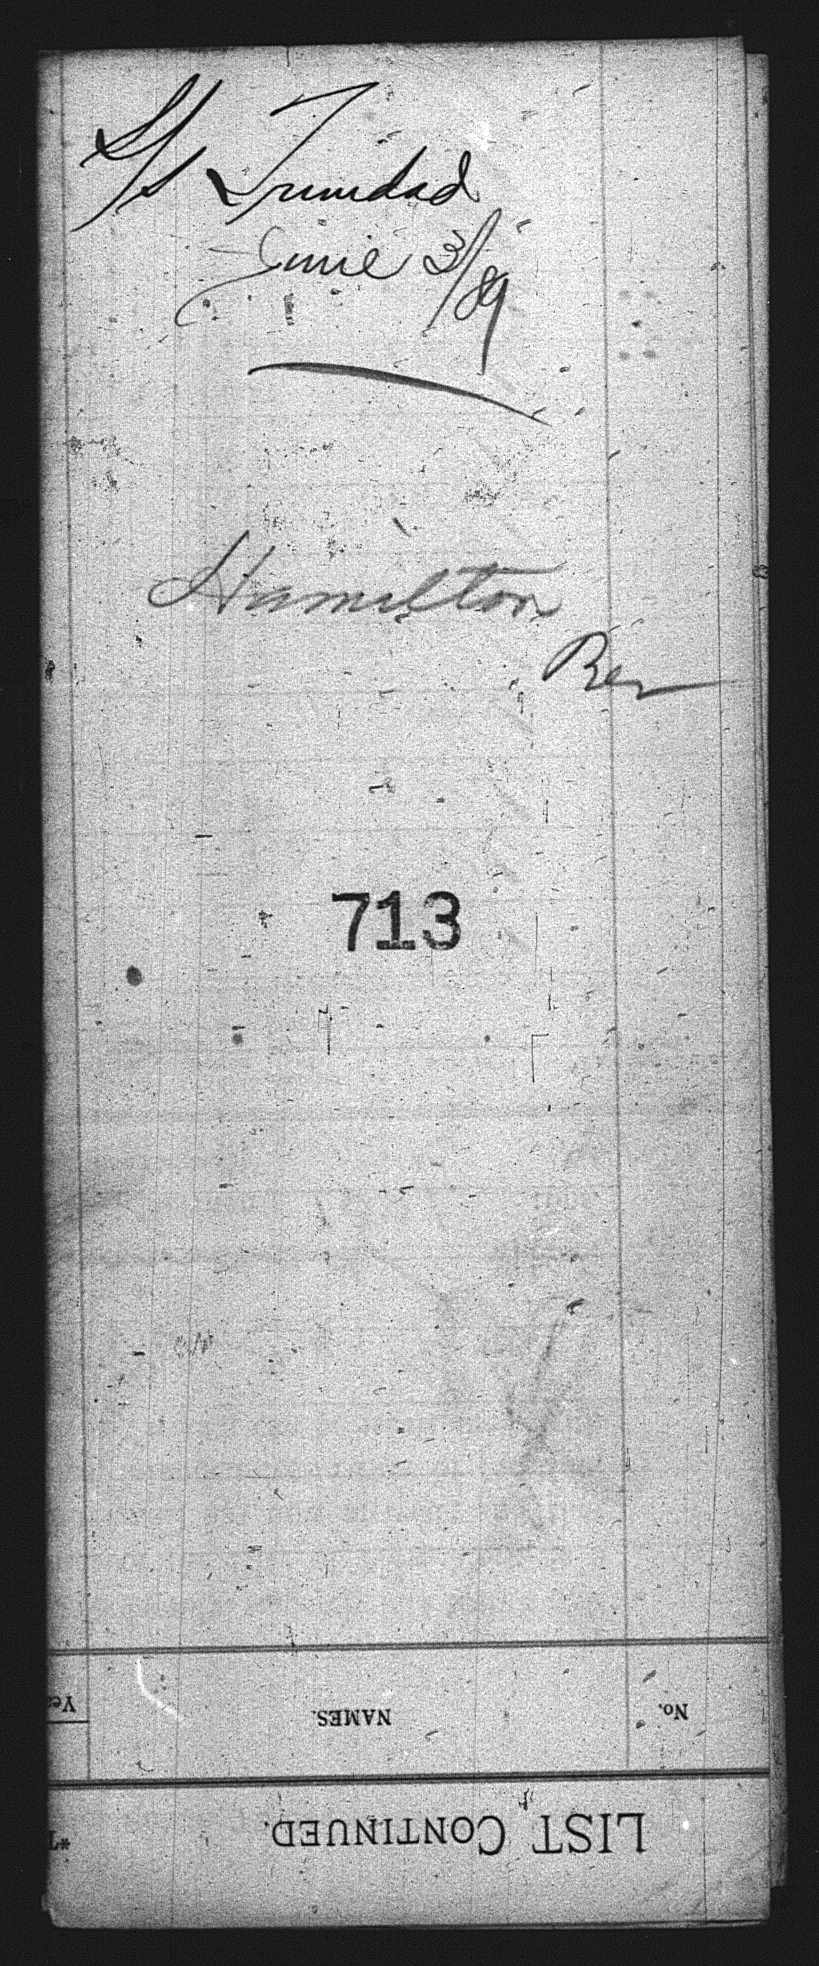 S/S Trinidad
June 3/89
Hamilton
Ber
713
No. NAMES.
LIST CONTINUED.